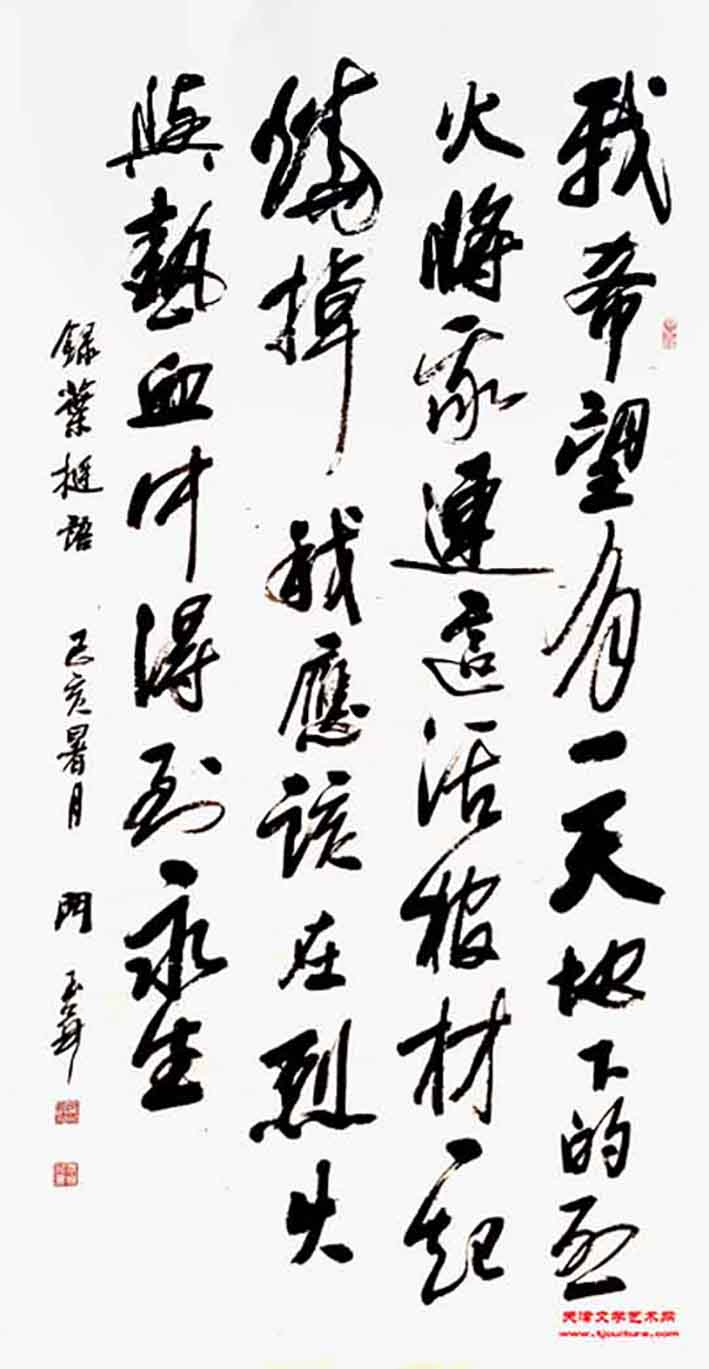 我希望有一天地下的烈
火將我連這活棺材一起
燒掉我應該在烈火
與熱血中得到永生
錄葉挺語 己亥暑月 門玉華
天津文学艺术网
www.tjculture.com